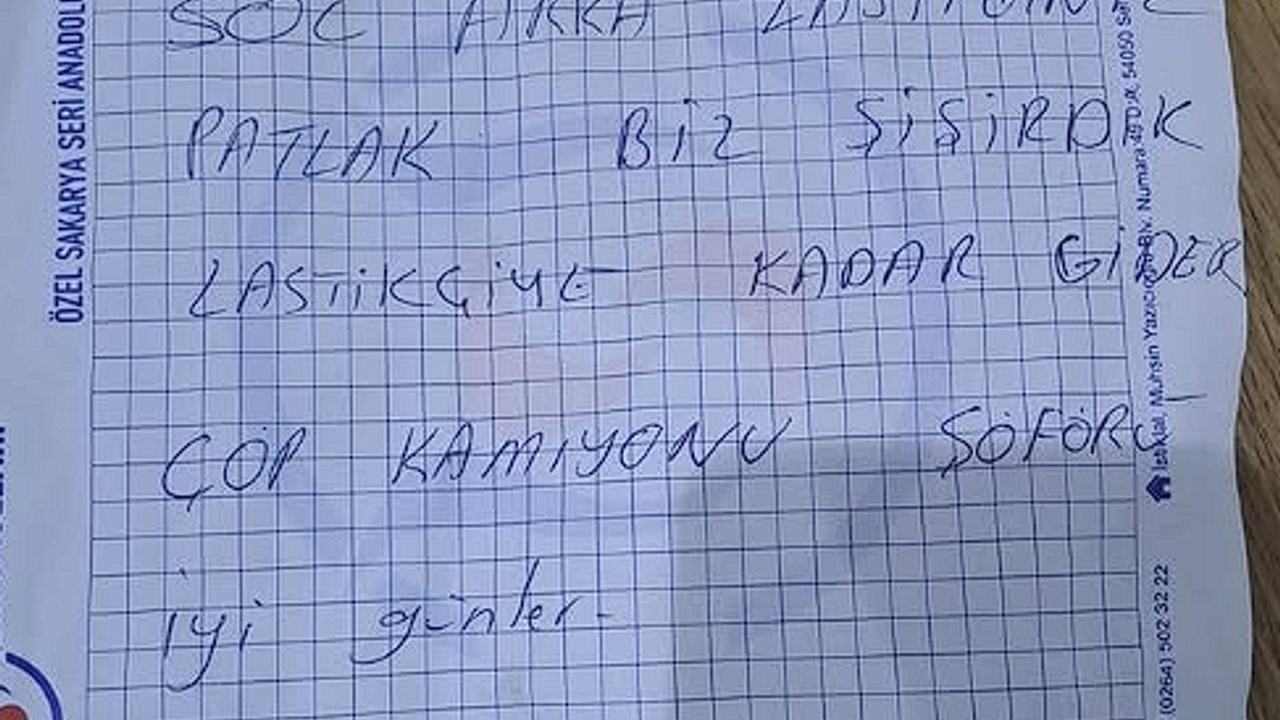 SOL ARKA LASTİĞİNİZ
PATLAK BİZ ŞİŞİRDİK
LASTİKÇİYE KADAR GİDER
ÇÖP KAMIYONU ŞÖFÖRÜ
iyi günler-
ÖZEL SAKARYA SERİ ANADOLU
İstiklal Muhsin Yazıcıoğlu Blv. Numara 49 D:A 54050
(0264) 502 32 22